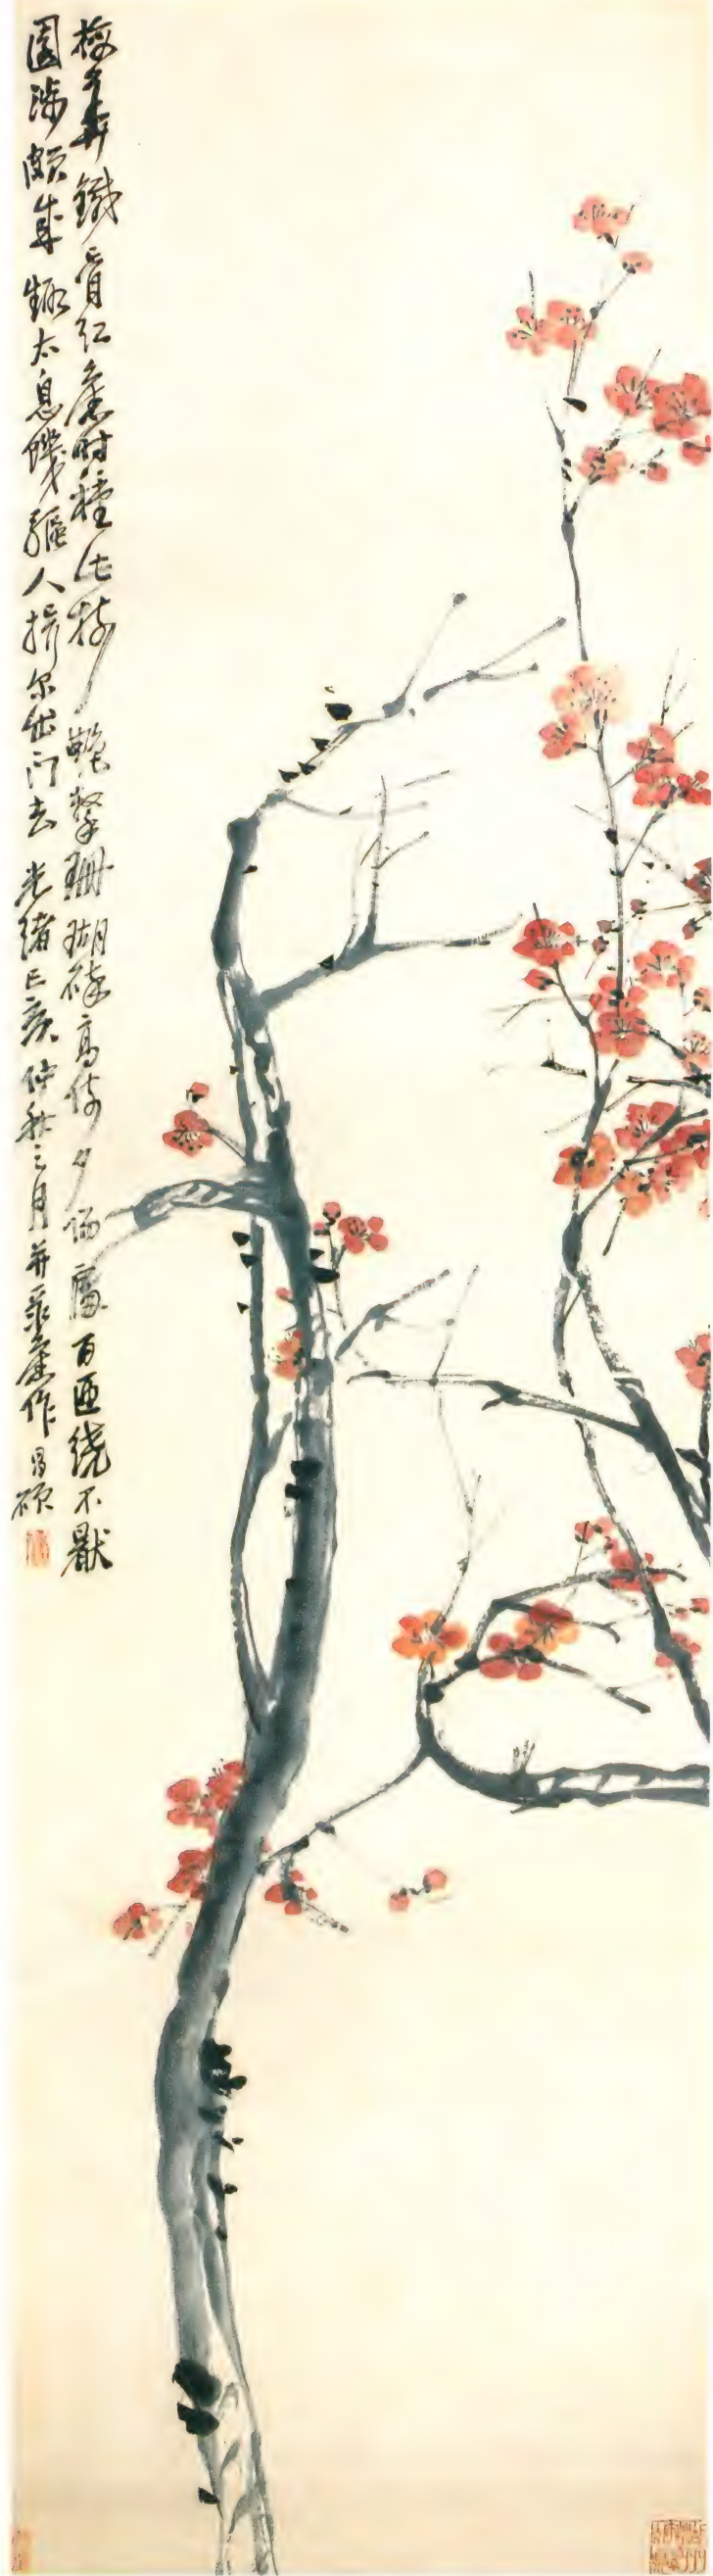 梅華鐵骨紅舊時種此樹豔擊珊瑚碎高倚夕陽處百匝繞不猒
園涉頗成趣太息饑驅人揖尔出門去光緒己亥仲秋之月并录舊作昌碩